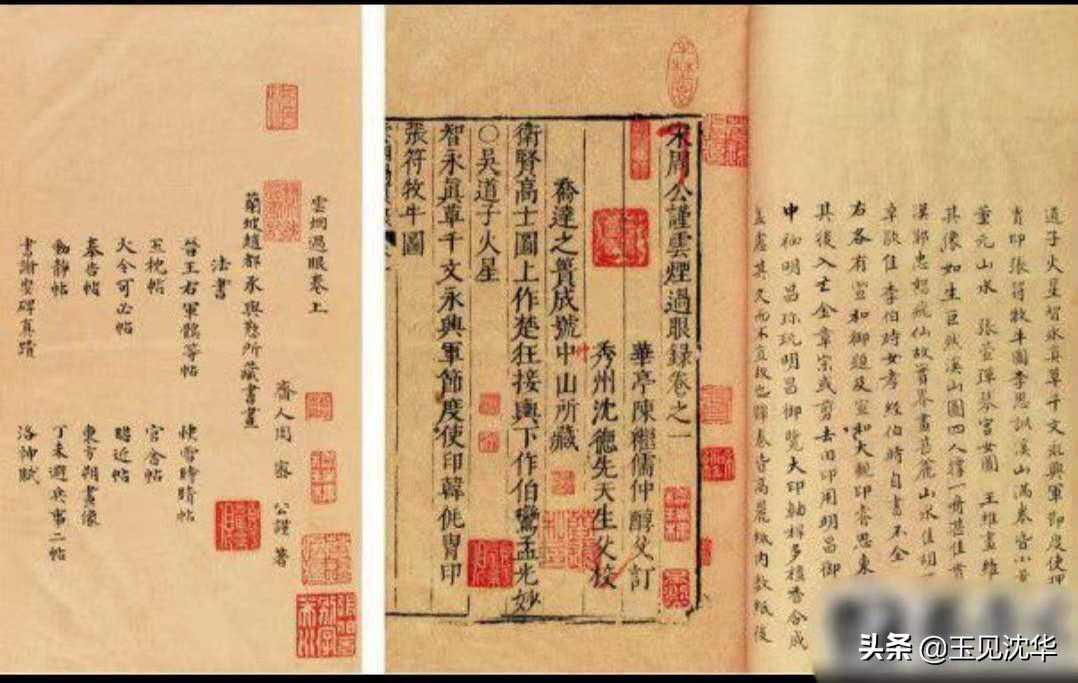 雲烟過眼卷上
齊人周 密 公謹 著
蘭坡趙都承與懃所藏書畫
法書
晉王右軍鵝等帖 快雪時晴帖
玉枕帖 官舍帖
大令可必帖 瞻近帖
奉告帖 東方朔畫像
静帖 丁未避兵事二帖
書謝安碑真蹟 洛神賦
宋周公謹雲煙過眼錄卷之一
華亭陳繼儒仲醇父訂
秀州沈德先天生父校
喬達之簣成號中山所藏
衛賢高士圖上作楚狂接輿下作伯鸞孟光妙
○吳道子火星
智永真草千文永興軍節度使印韓侂胄印
張符牧牛圖
道子火星智永真草千文永興軍節度使
青印張符牧牛圖李思訓溪山滿卷皆小
董元山水 張萱彈琴宮女圖 王維畫維
其像如生巨然溪山圖四人撐一舟甚佳
漢郭忠恕飛仙故實界畫甚麗山水佳胡
卓歇佳李伯時女孝經伯時自書不全
右各有宣和御題及宣和大觀印睿思東
其後入亡金章宗或剪去田印用明昌御
中祕明昌珎玩明昌御覽大印軸桿多檀香合成
盖慮其久而不直故也餘卷皆高麗紙内數紙後
头条 @玉见沈华